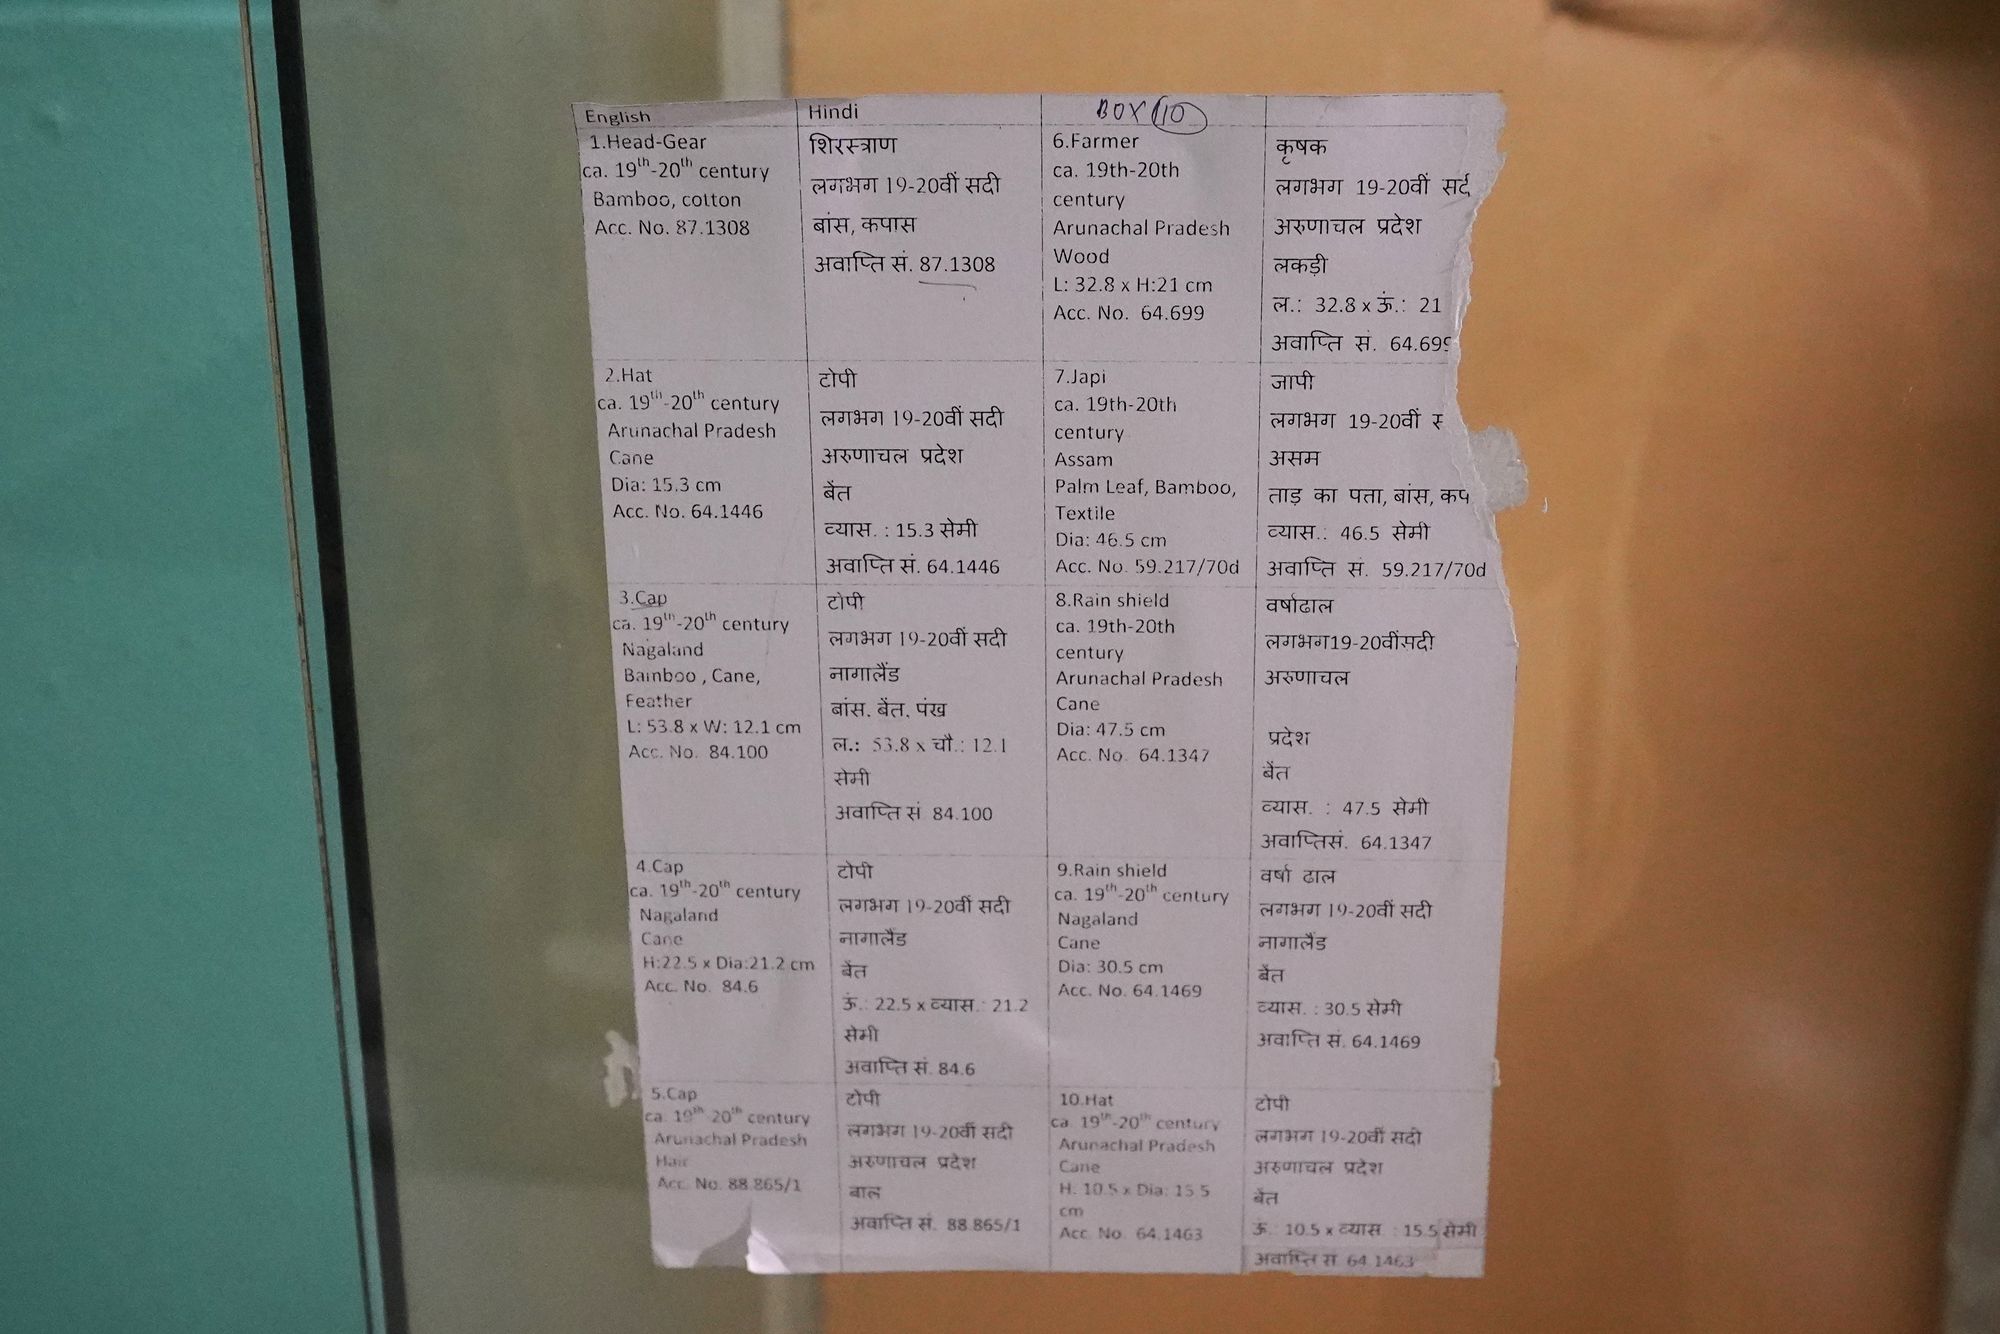 English
1.Head-Gear
ca. 19th-20th century
Bamboo, cotton
Acc. No. 87.1308
2.Hat
ca. 19th-20th century
Arunachal Pradesh
Cane
Dia: 15.3 cm
Acc. No. 64.1446
3.Cap
ca. 19th-20th century
Nagaland
Bamboo , Cane,
Feather
L: 53.8 x W: 12.1 cm
Acc. No. 84.100
4.Cap
ca. 19th-20th century
Nagaland
Cane
H:22.5 x Dia:21.2 cm
Acc. No. 84.6
5.Cap
ca. 19th-20th century
Arunachal Pradesh
Hair
Acc. No. 88.865/1
Hindi
शिरस्त्राण
लगभग 19-20वीं सदी
बांस, कपास
अवाप्ति सं. 87.1308
टोपी
लगभग 19-20वीं सदी
अरुणाचल प्रदेश
बेंत
व्यास. : 15.3 सेमी
अवाप्ति सं. 64.1446
टोपी
लगभग 19-20वीं सदी
नागालैंड
बांस, बेंत, पंख
ल.: 53.8 x चौ.: 12.1
सेमी
अवाप्ति सं 84.100
टोपी
लगभग 19-20वीं सदी
नागालैंड
बेंत
ऊं.: 22.5 x व्यास.: 21.2
सेमी
अवाप्ति सं. 84.6
टोपी
लगभग 19-20वीं सदी
अरुणाचल प्रदेश
बाल
अवाप्ति सं. 88.865/1
BOX 10
6.Farmer
ca. 19th-20th
century
Arunachal Pradesh
Wood
L: 32.8 x H:21 cm
Acc. No. 64.699
7.Japi
ca. 19th-20th
century
Assam
Palm Leaf, Bamboo,
Textile
Dia: 46.5 cm
Acc. No. 59.217/70d
8.Rain shield
ca. 19th-20th
century
Arunachal Pradesh
Cane
Dia: 47.5 cm
Acc. No. 64.1347
9.Rain shield
ca. 19th-20th century
Nagaland
Cane
Dia: 30.5 cm
Acc. No. 64.1469
10.Hat
ca. 19th-20th century
Arunachal Pradesh
Cane
H: 10.5 x Dia: 15.5
cm
Acc. No. 64.1463
कृषक
लगभग 19-20वीं
अरुणाचल प्रदेश
लकड़ी
ल.: 32.8 x ऊं.: 21
अवाप्ति सं. 64.699
जापी
लगभग 19-20वीं
असम
ताड़ का पत्ता, बांस,
व्यास.: 46.5 सेमी
अवाप्ति सं. 59.217/70d
वर्षाढाल
लगभग19-20वींसदी
अरुणाचल
प्रदेश
बेंत
व्यास. : 47.5 सेमी
अवाप्तिसं. 64.1347
वर्षा ढाल
लगभग 19-20वीं सदी
नागालैंड
बेंत
व्यास. : 30.5 सेमी
अवाप्ति सं. 64.1469
टोपी
लगभग 19-20वीं सदी
अरुणाचल प्रदेश
बेंत
ऊं.: 10.5 x व्यास : 15.5 सेमी
अवाप्ति सं 64.1463